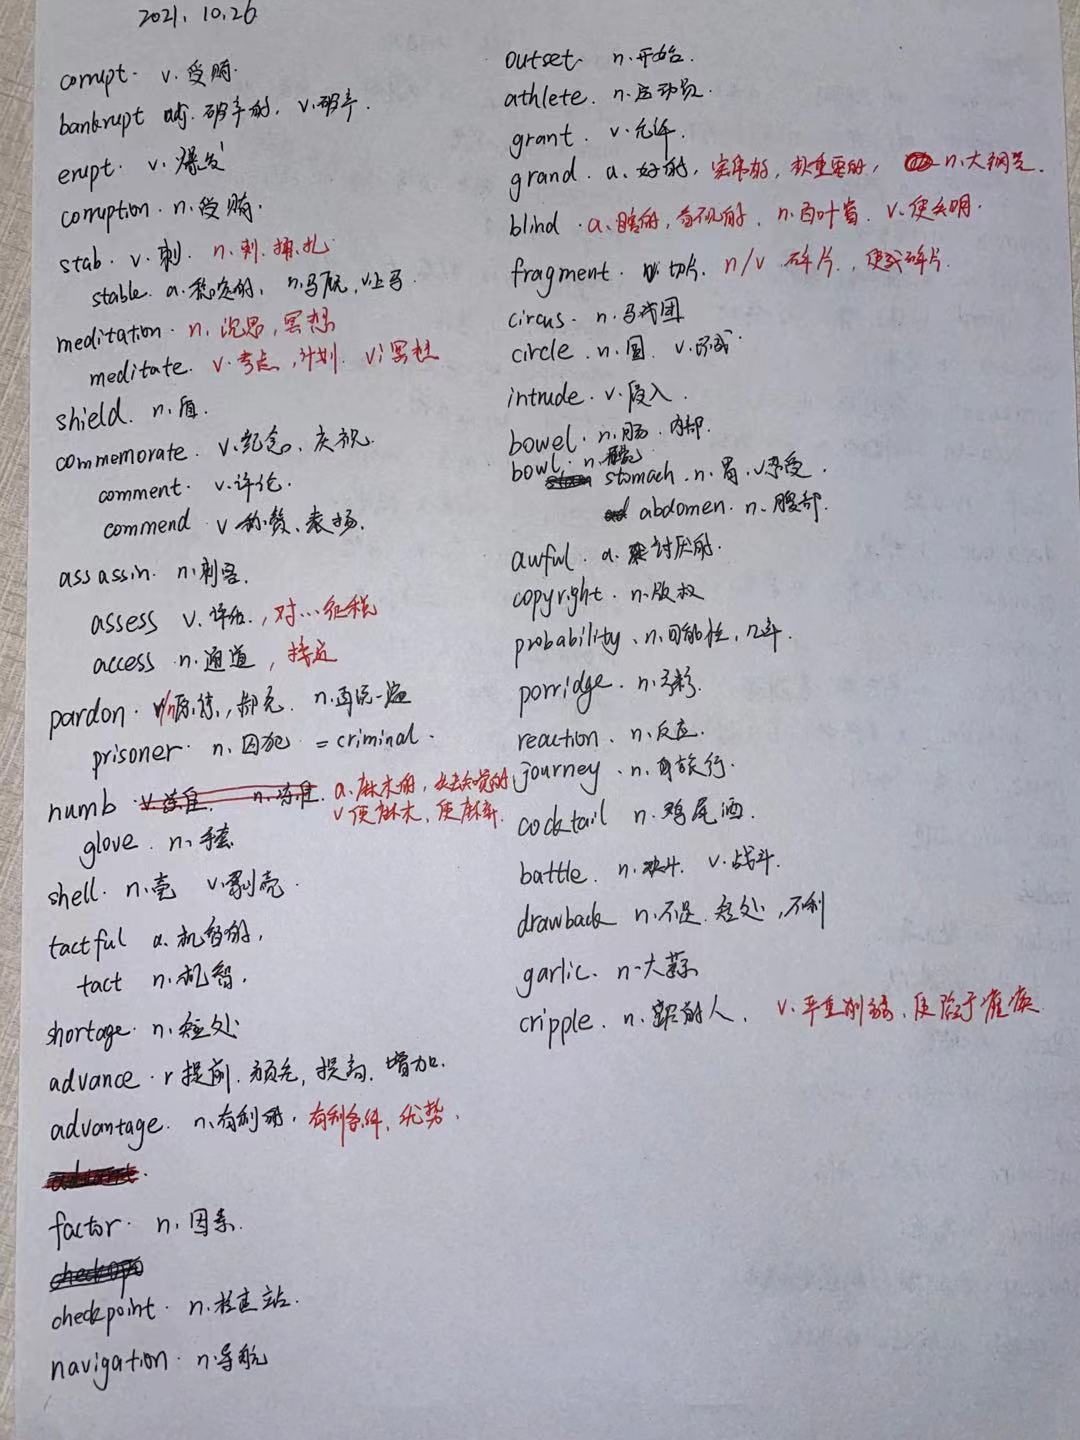 2021.10.26
corrupt. v.受贿.
bankrupt adj.破产的, v.破产.
erupt. v.爆发
corruption. n.受贿.
stab. v.刺. n.刺.捅.扎
stable. a.稳定的, n.马厩, v.上马
meditation. n.沉思,冥想
meditate. v.考虑,计划. vi冥想
shield. n.盾.
commemorate. v.纪念,庆祝.
comment. v.评论.
commend v称赞、表扬.
assassin. n.刺客.
assess v.评估,对…征税
access n.通道,接近
pardon. v/n原谅,赦免. n.再说一遍
prisoner. n.囚犯 =criminal.
numb a.麻木的,失去知觉的
v使麻木,使麻痹.
glove. n.手套
shell. n.壳 v.剥壳.
tactful a.机智的,
tact n.机智.
shortage. n.短处
advance. v提前.预先,提高.增加.
advantage. n.有利用. 有利条件,优势.
factor. n.因素.
checkpoint. n.检查站.
navigation. n.导航
outset. n.开始.
athlete. n.运动员.
grant. v.允许.
grand. a.好的,宏伟的,最重要的, n.大钢琴.
blind. a.瞎的,盲视的. n.百叶窗. v.使失明.
fragment. 切片. n/v 碎片,使成碎片.
circus. n.马戏团
circle. n.圆. v.环成.
intrude. v.侵入.
bowel. n.肠.内部.
bowl. n.碗
stomach. n.胃. v忍受.
abdomen. n.腹部.
awful. a.讨厌的.
copyright. n.版权
probability. n.可能性,几率.
porridge. n.粥.
reaction. n.反应.
journey. n.旅行.
cocktail n.鸡尾酒.
battle. n.决斗. v.战斗.
drawback n.不足.短处,不利
garlic. n.大蒜
cripple. n.的人. v.严重削弱,使陷于瘫痪